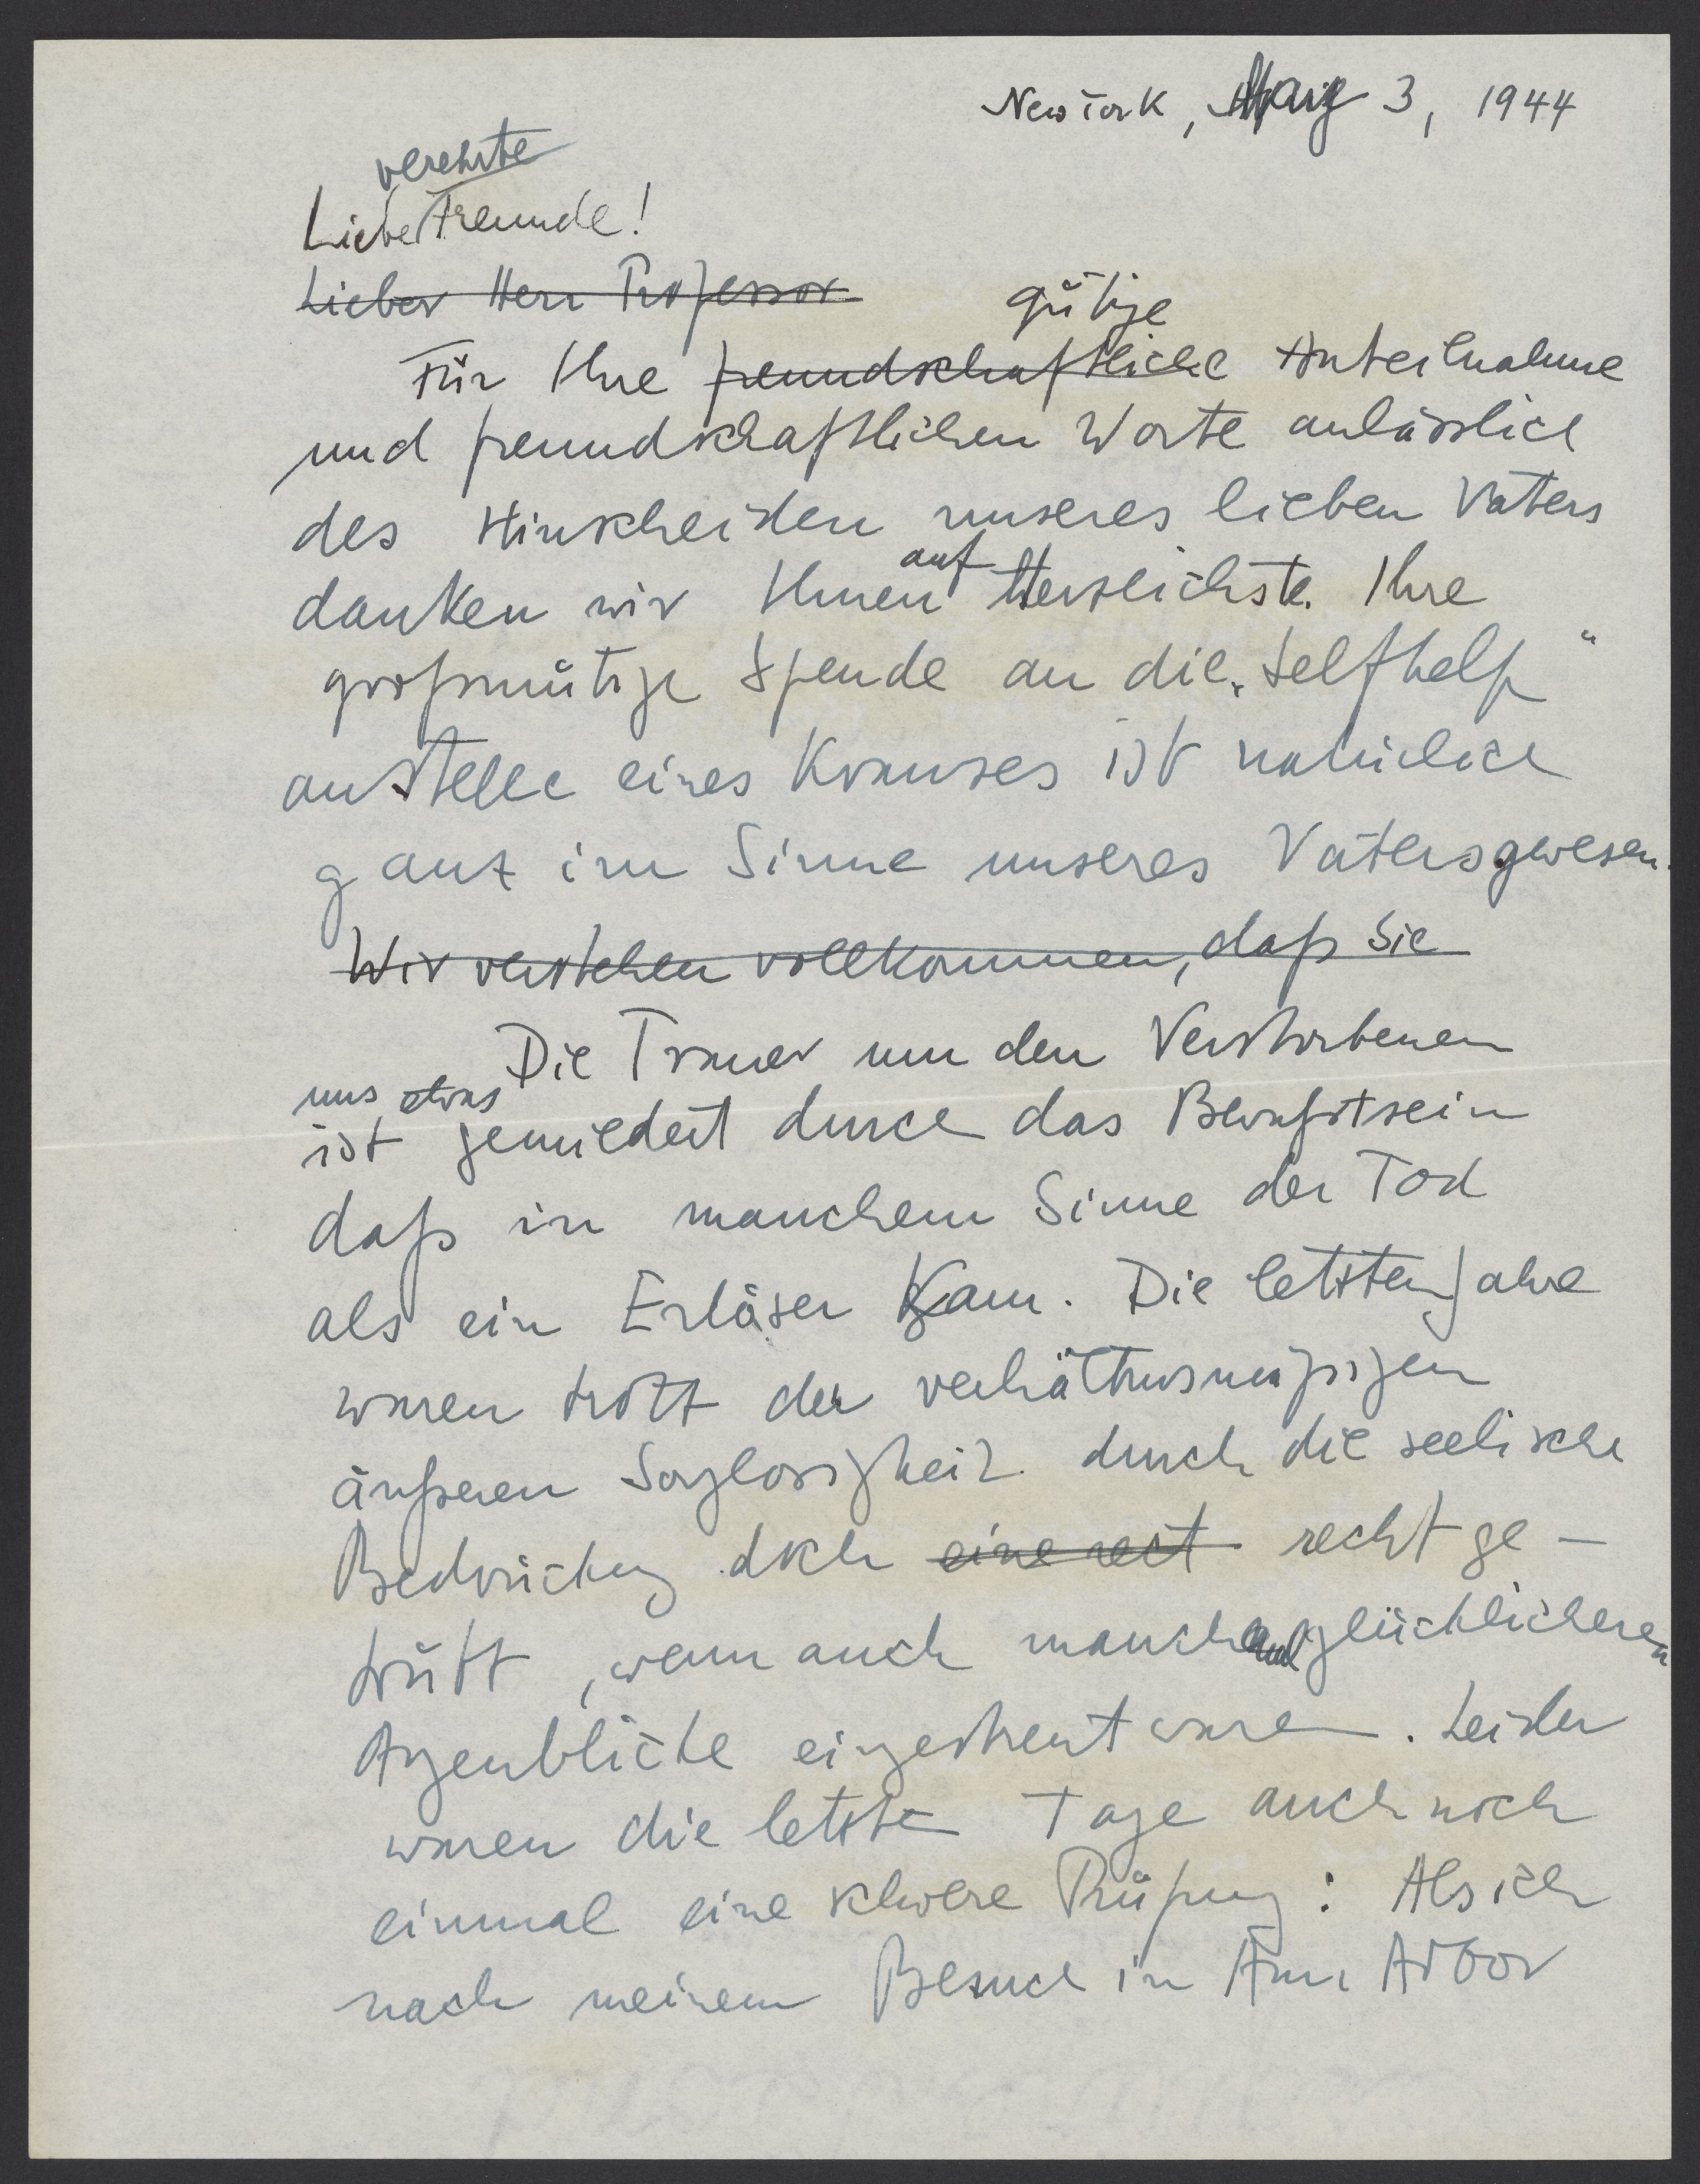 New York, May 3, 1944
verehrte
Liebe Freunde!
Lieber Herr Professor
gütige
Für Ihre freundschaftliche Anteilnahme
und freundschaftlichen Worte anlässlich
des Hinscheiden unseres lieben Vaters
auf
danken wir Ihnen Herzlichste. Ihre
großmütige Spende an die „Selfhelp“
anstelle eines Kranses ist natürlich
ganz im Sinne unseres Vaters gwesen.
Wir verstehen vollkommen, daß Sie
Die Trauer um den Verstorbenen
uns etwas
ist gemildert durch das Bewußtsein
daß in manchem Sinne der Tod
als ein Erlöser kam. Die letzten Jahre
waren trotz der verhältnusmäßigen
äußeren Sorglosigkeit durch die seelische
Bedrückung doch eine recht recht ge-
trübt, wenn auch manche glücklicheren
Augenblicke eingestreut waren. Leider
waren die letzte Tage auch noch
einmal eine schwere Prüfung: Als ich
nach meinem Besuch in Ann Arbor